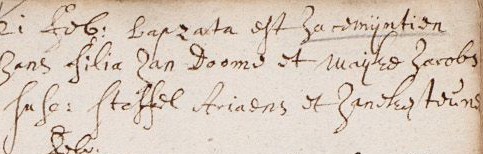 21 Feb: bapzata est Jacemijntien
Jans filia Jan Doome et Maijke Jacobs
susc: Stoffel Ariaens et Janeke teune
Feb: